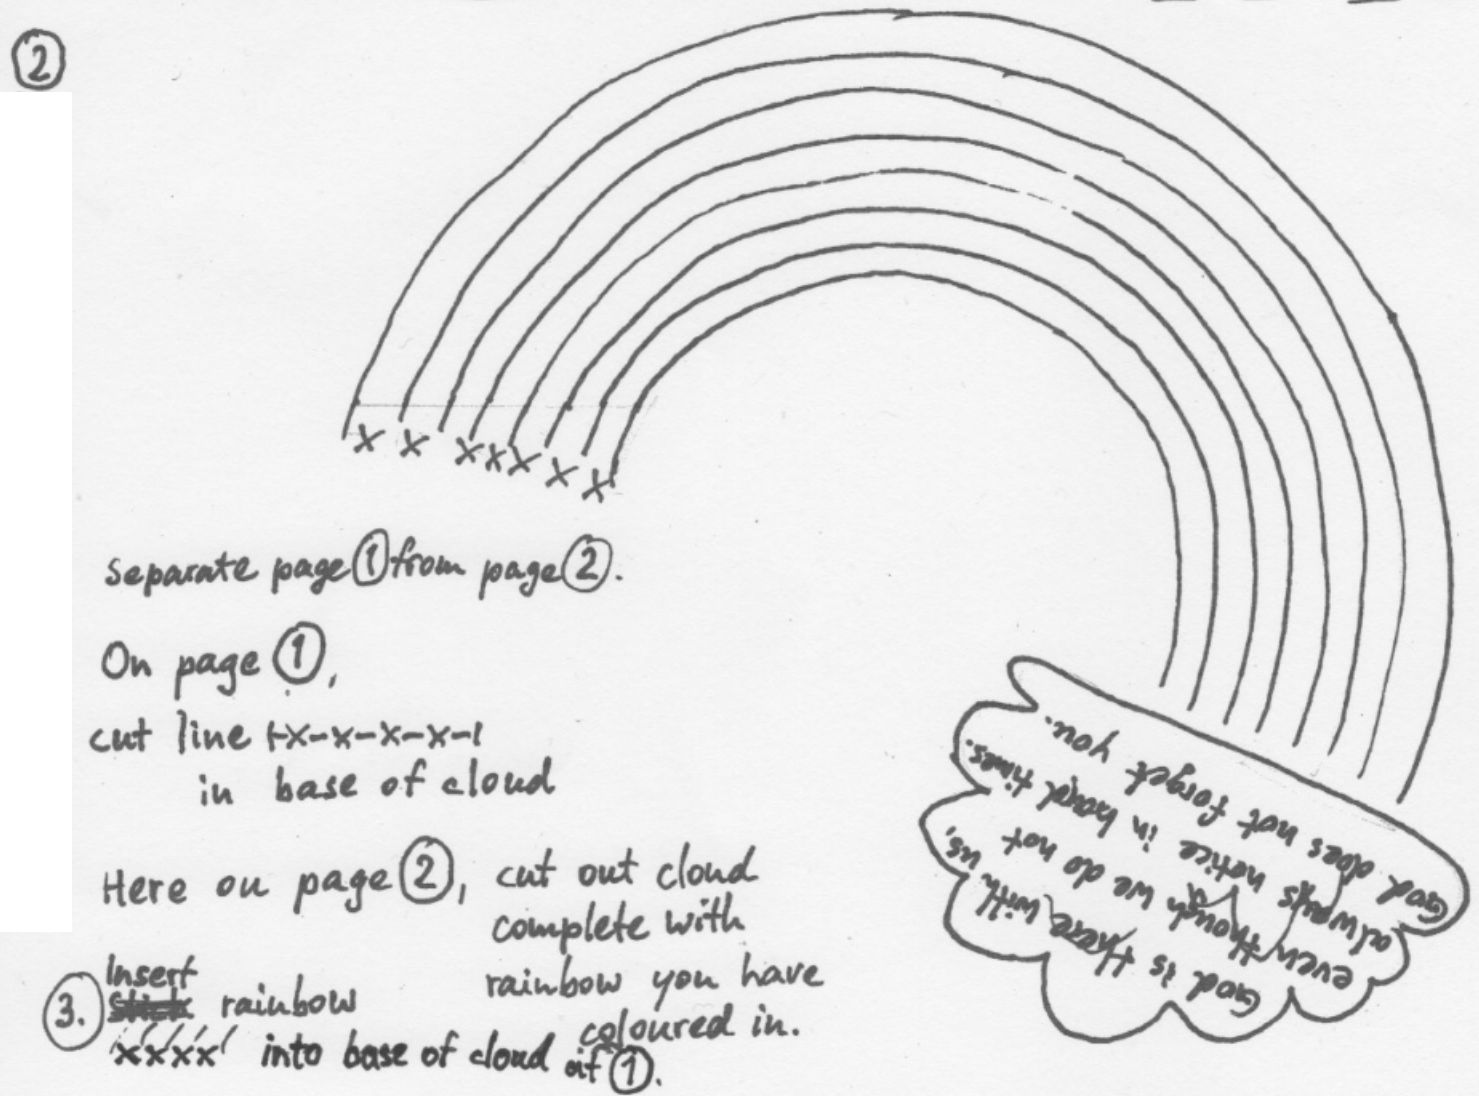 2
x x x x x x x
Separate page 1 from page 2.
On page 1,
cut line |-x-x-x-x-|
in base of cloud
Here on page 2, cut out cloud
complete with
rainbow you have
coloured in.
3. Insert rainbow
xxxx into base of cloud of 1.
God is there with us,
even though we do not
always notice in hard times.
God does not forget you.